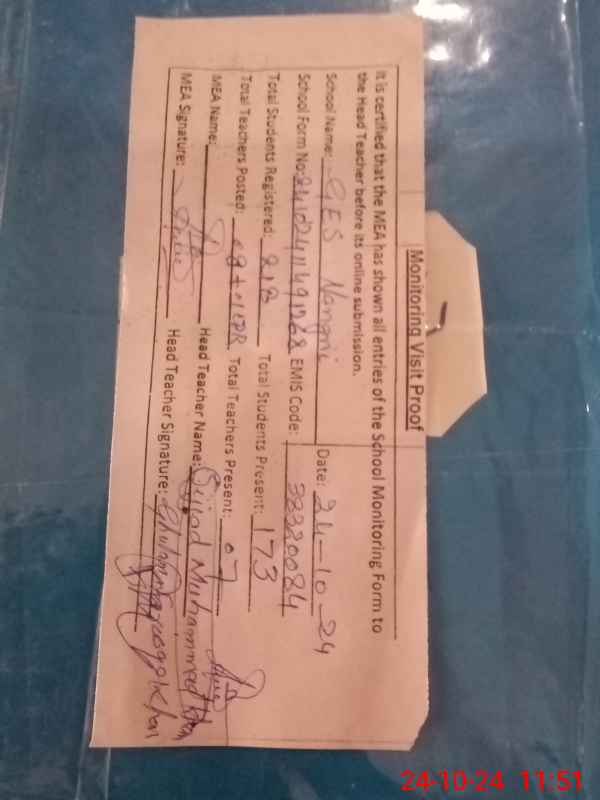 Monitoring Visit Proof
It is certified that the MEA has shown all entries of the School Monitoring Form to
the Head Teacher before its online submission.
School Name: GES Nangni Date: 24-10-24
School Form No: EMIS Code: 38320084
Total Students Registered: 218 Total Students Present: 173
Total Teachers Posted: Total Teachers Present: 07
MEA Name: Head Teacher Name: Sajjad Muhammad Khan
MEA Signature: Head Teacher Signature:
24-10-24 11:51